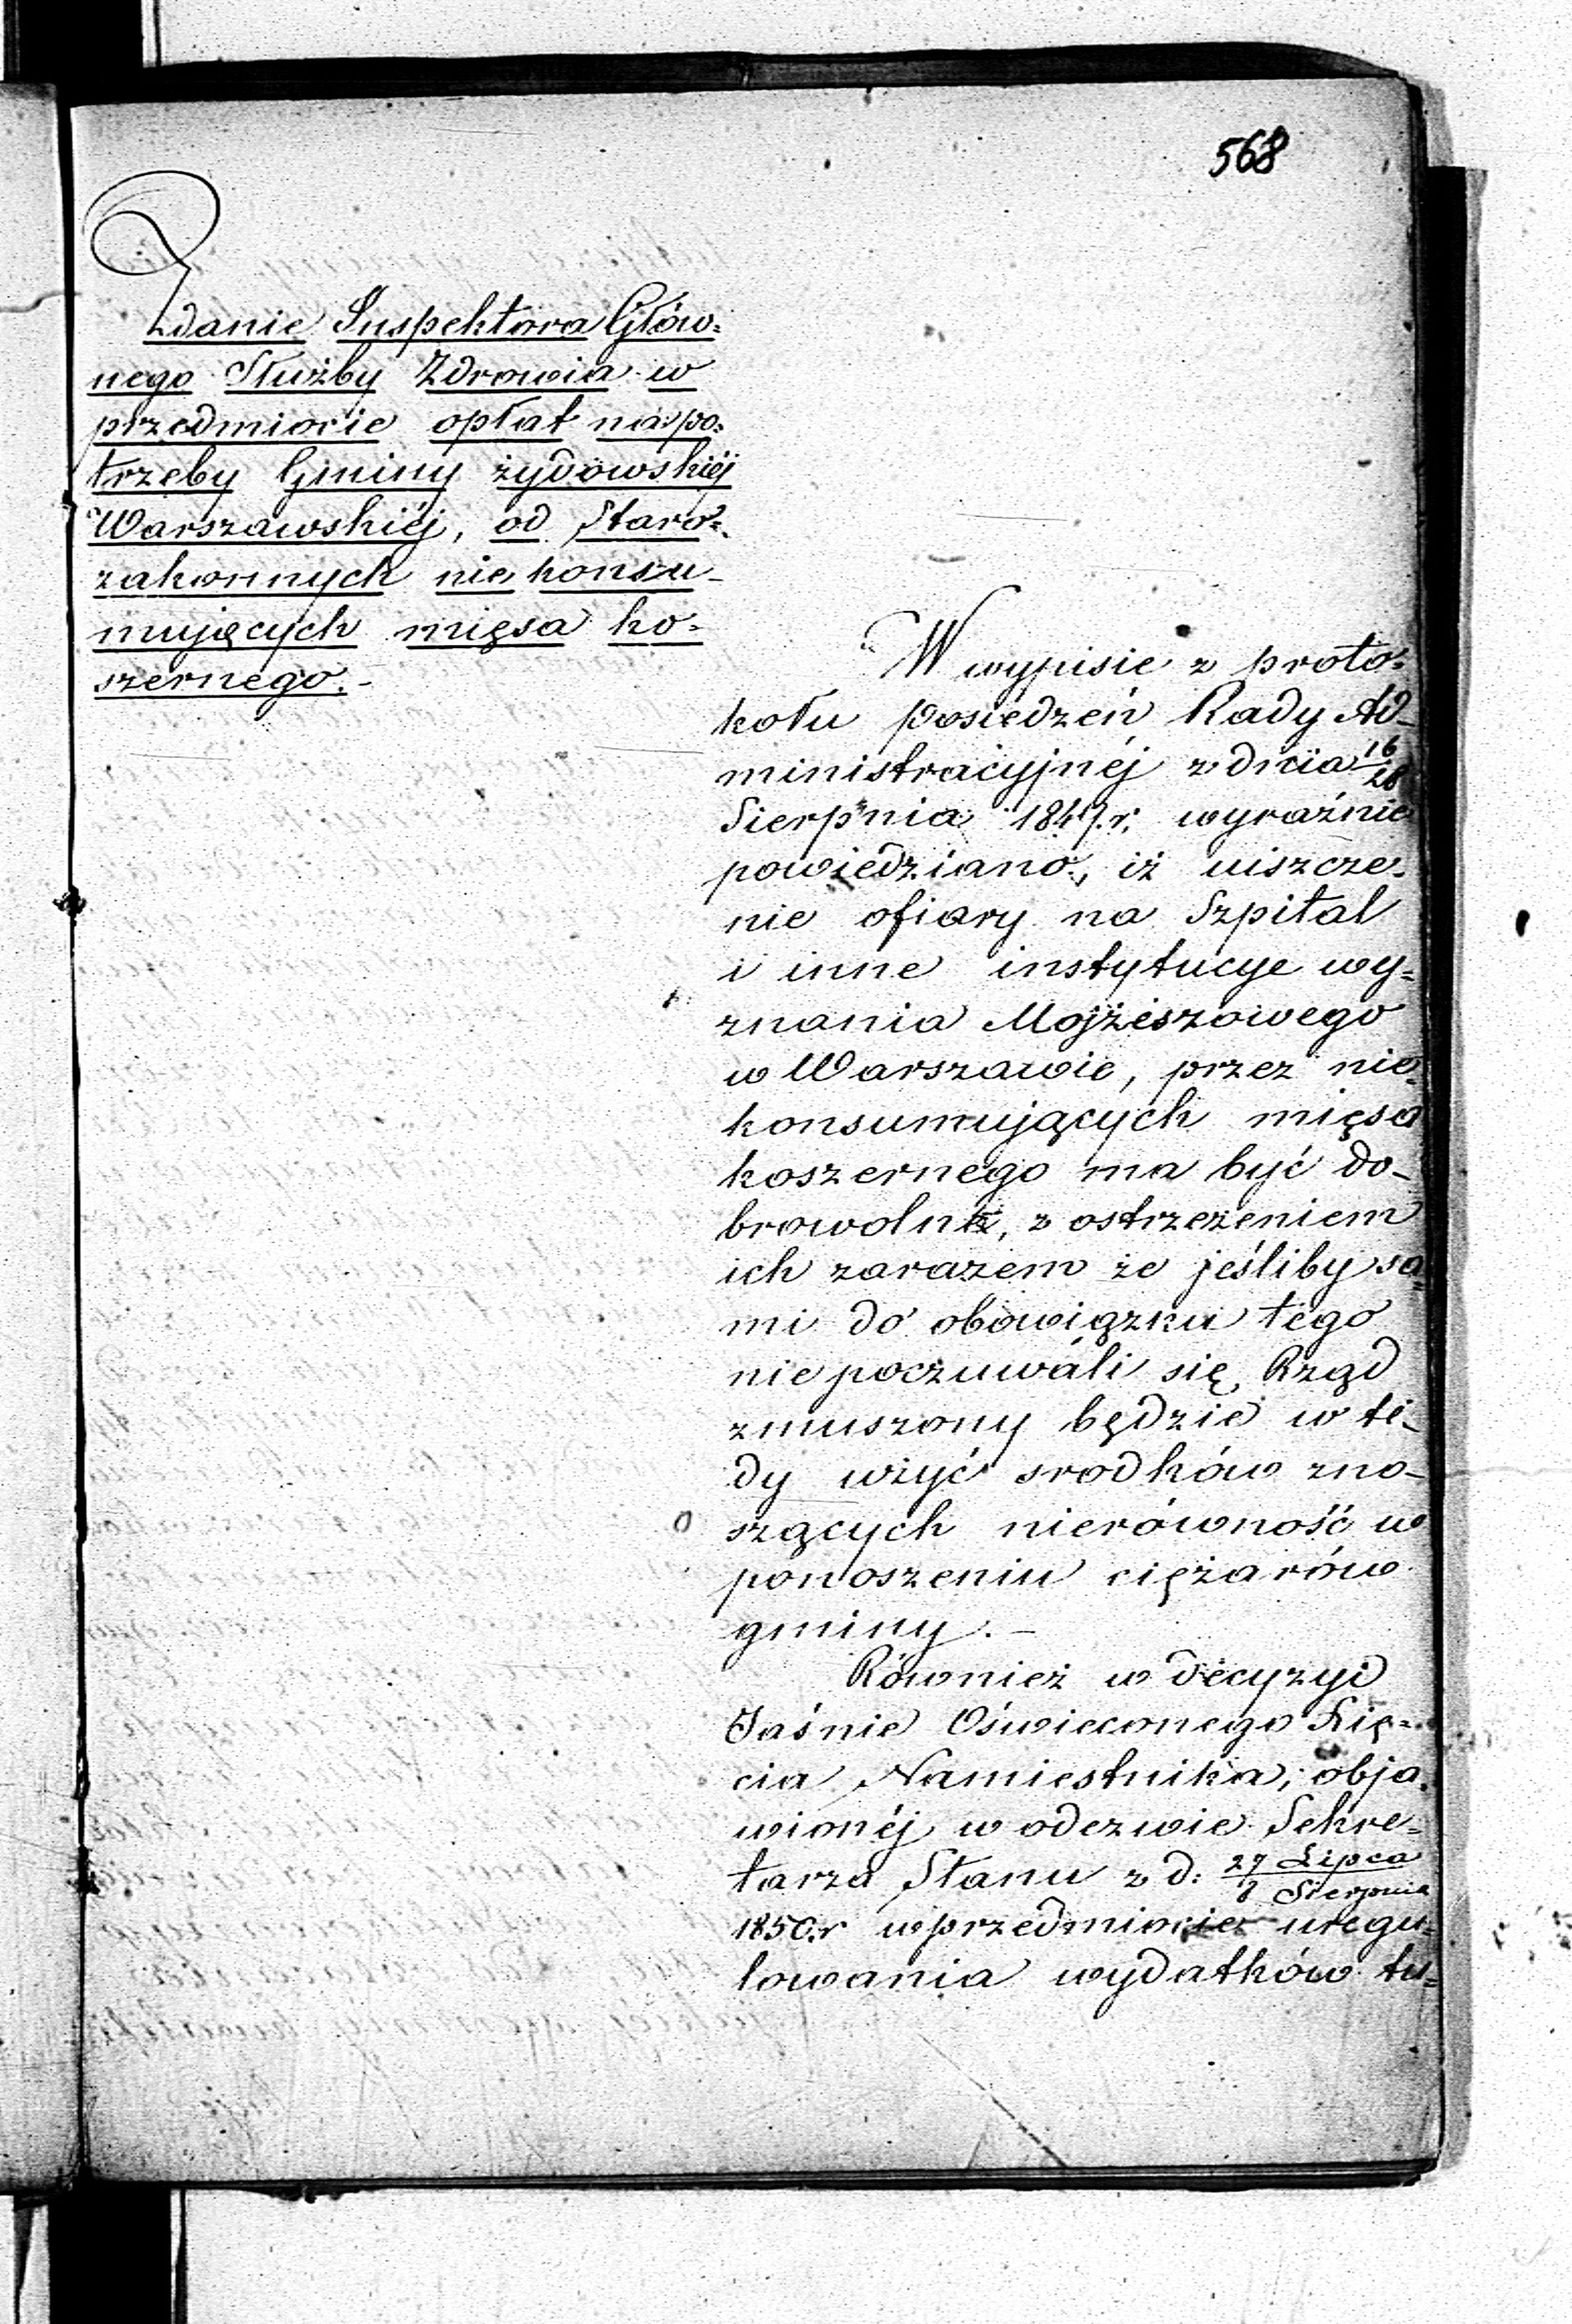 568
Zdanie Inspektora Głów=
nego Służby Zdrowia w
przedmiocie opłat na po=
trzeby Gminy żydowskiéj
Warszawskiéj, od Staro=
zakonnych nie konsu-
mujących mięsa ko=
szernego.-
W wypisie z proto=
kołu posiedzeń Rady Ad-
ministracyjnéj z dnia 16/28
Sierpnia 1847.r. wyraźnie
powiedziano, iż uiszcze-
nie ofiary na Szpital
i inne instytucye wy=
znania Mojżeszowego
w Warszawie, przez nie
konsumujących mięsa
koszernego ma być do-
browolne, z ostrzeżeniem
ich zarazem że jeśliby sa=
mi do obowiązku tego
nie poczuwali się, Rząd
zmuszony będzie w te-
dy użyć srodków zno-
szących nierówność w
ponoszeniu ciężarów
gminy.-
Również w decyzyi
Jaśnie Oświeconego Xię=
cia Namiestnika, obja-
wionéj w odezwie Sekre=
tarza Stanu z d: 27 Lipca/8 Sierpnia
1850.r w przedmiocie uregu=
lowania wydatków tu=